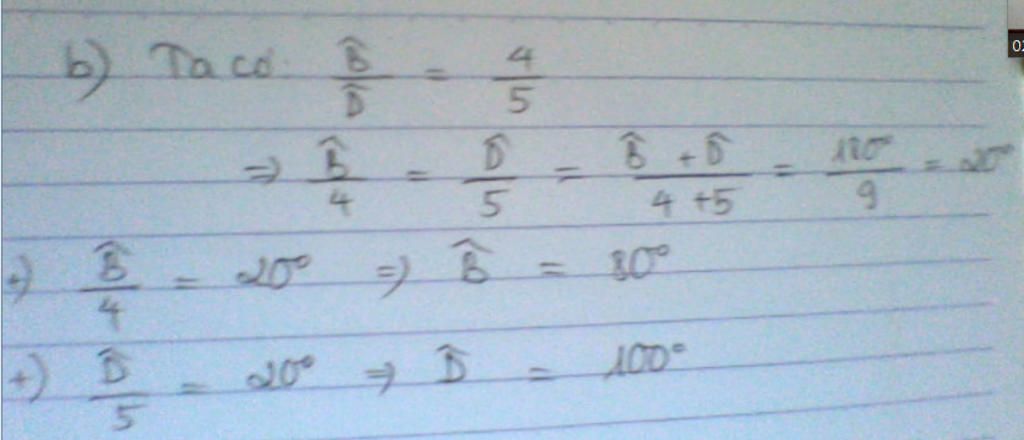 b) Ta có: B̂/D̂ = 4/5
=> B̂/4 = D̂/5 = (B̂ + D̂)/(4 + 5) = 180°/9 = 20°
+) B̂/4 = 20° => B̂ = 80°
+) D̂/5 = 20° => D̂ = 100°